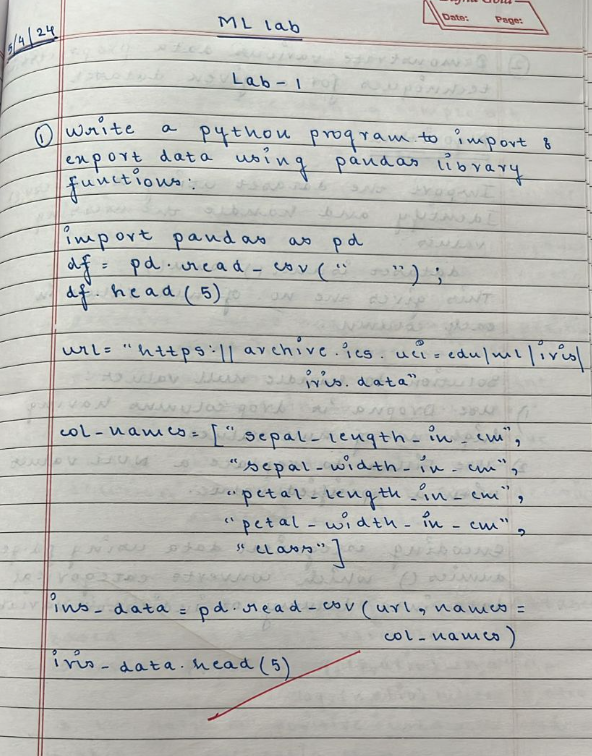 Date: Page:
ML lab
5/4/24
Lab-1
① Write a python program to import &
export data using pandas library
functions:
import pandas as pd
df = pd.read_csv(" ");
df.head(5)
url = "https://archive.ics.uci=edu/ml/iris/
iris.data"
col_names = ["sepal_length_in_cm",
"sepal_width_in_cm",
"petal_length_in_cm",
"petal_width_in_cm",
"class"]
iris_data = pd.read_csv(url, names =
col_names)
iris_data.head(5)